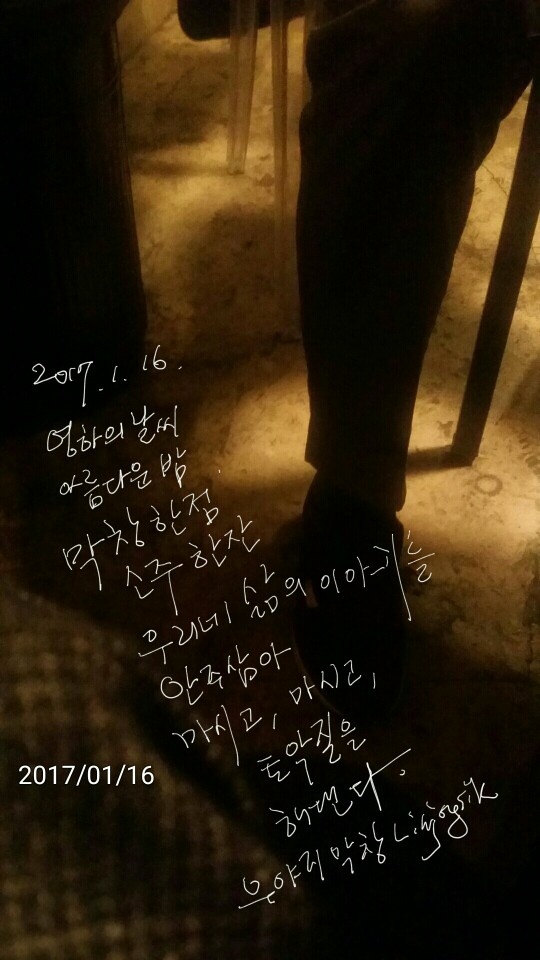 2017. 1. 16.
영하의 날씨
아름다운 밤.
막창 한점
소주 한잔
우리네 삶의 이야기를
안주삼아
마시고, 마시고,
토악질을
해댄다.
막창
2017/01/16